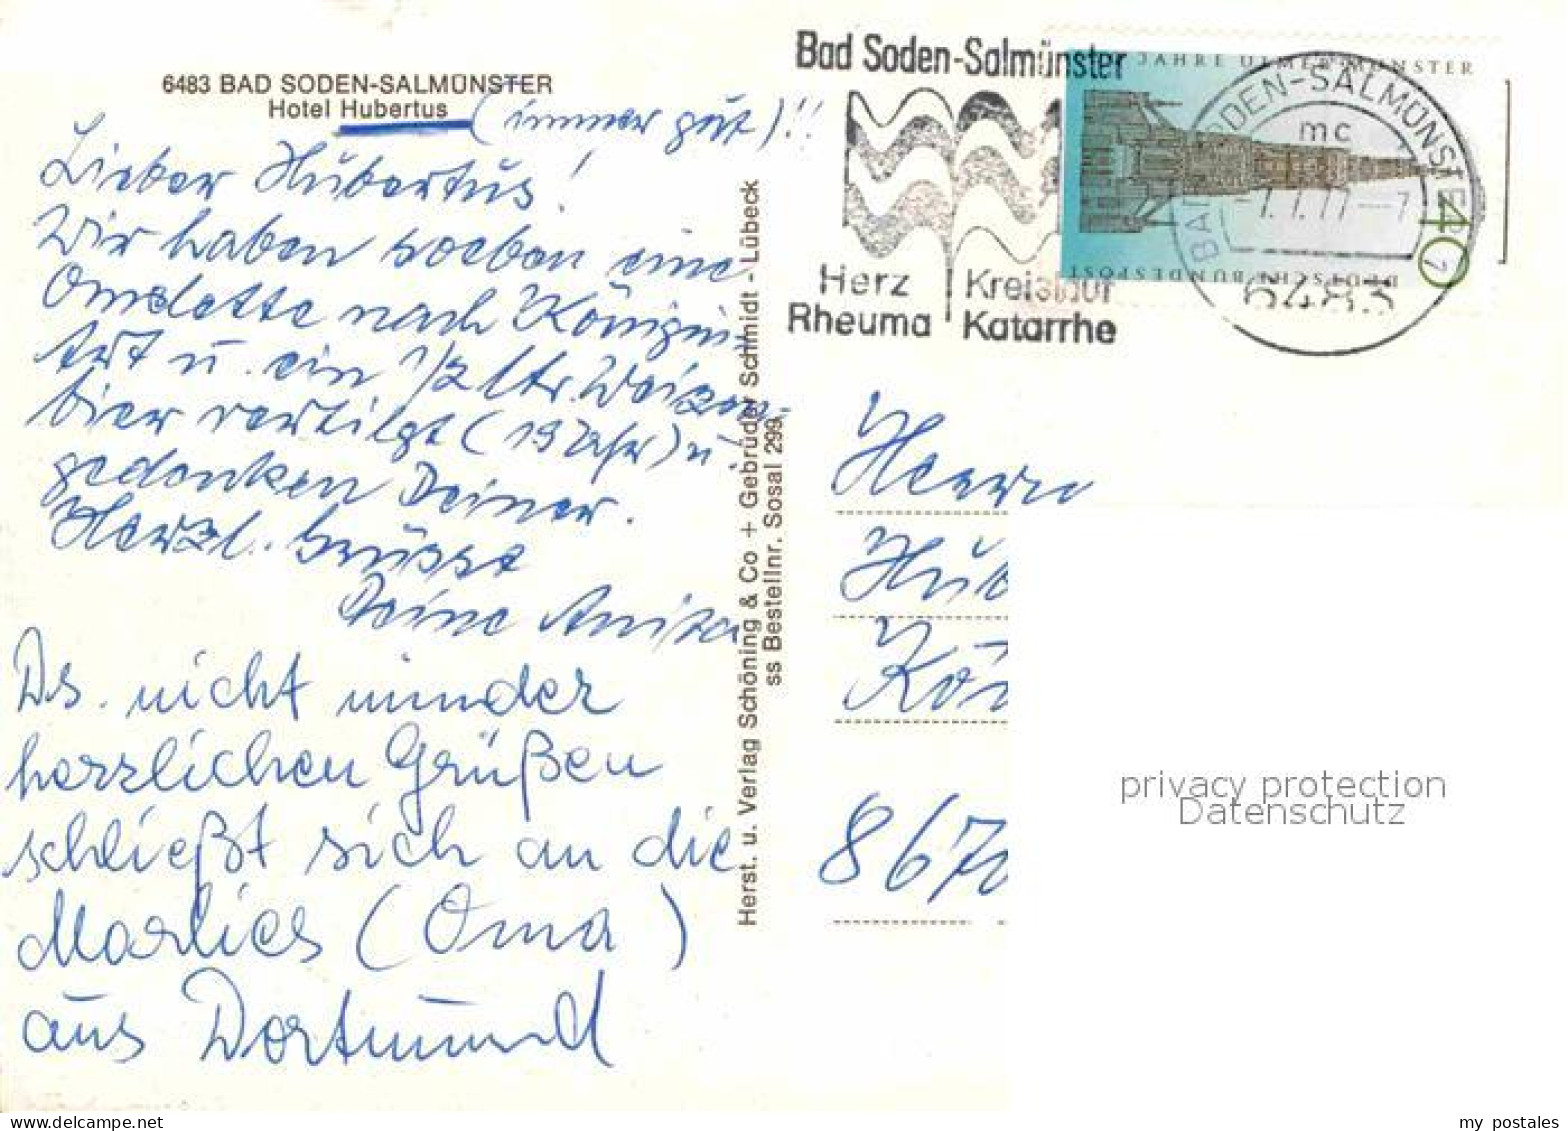 6483 BAD SODEN-SALMÜNSTER
Hotel Hubertus
(immer gut)!!
Lieber Hubertus!
Wir haben soeben eine
Omelette nach Königin-
Art u. ein 1/2 ltr. Weizen-
bier vertilgt (19 Uhr) u.
gedenken Deiner.
Herzl. grüsst
Deine Anita
Ds. nicht minder
herzlichen Grüßen
schließt sich an die
Marlies (Oma)
aus Dortmund
Herst. u. Verlag Schöning & Co + Gebrüder Schmidt - Lübeck
ss Bestellnr. Sosal 299
Bad Soden-Salmünster
Herz
Rheuma
Kreislauf
Katarrhe
JAHRE ULMER MÜNSTER
DEUTSCHE BUNDESPOST
40
BAD SODEN-SALMÜNSTER
mc
-7
6483
Herrn
Hub
Kön
867
privacy protection
Datenschutz
my postales